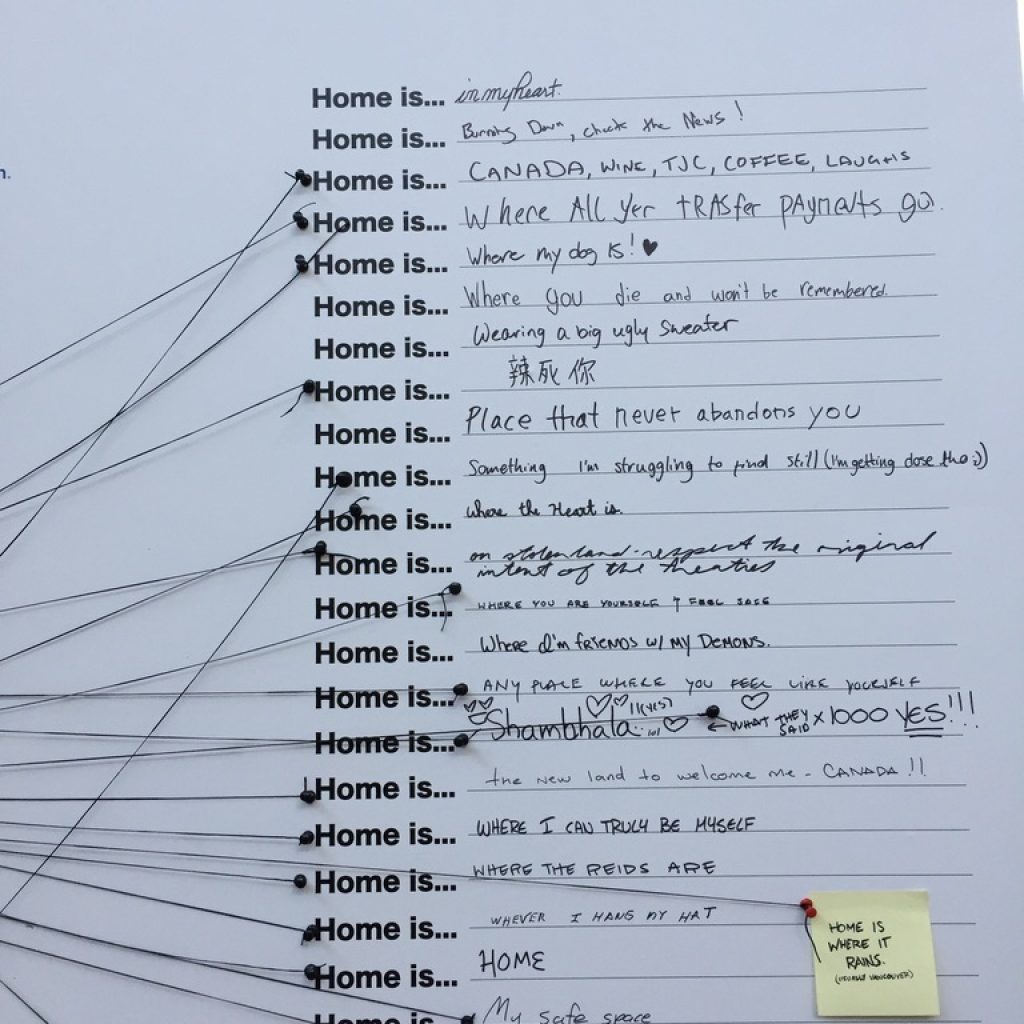 n.
Home is... in my heart.
Home is... Burning Down, check the News!
Home is... CANADA, WINE, TJC, COFFEE, LAUGHS
Home is... Where All Yer tRASfer pAymeNts go.
Home is... Where my dog is! ♥
Home is... Where you die and won't be remembered.
Home is... Wearing a big ugly sweater
Home is... 辣死你
Home is... Place that never abandons you
Home is... Something I'm struggling to find still (I'm getting close tho :))
Home is... where the Heart is.
Home is... on stolen land - respect the original
intent of the treaties
Home is... WHERE YOU ARE YOURSELF & FEEL SAFE
Home is... Where I'm friends w/ my Demons.
Home is... ANY PLACE WHERE YOU FEEL LIKE YOURSELF
Home is... Shambhala... !!(YES) ← WHAT THEY SAID x 1000 YES!!!
Home is... the new land to welcome me - CANADA!!
Home is... WHERE I CAN TRULY BE MYSELF
Home is... WHERE THE REIDS ARE
Home is... WHEVER I HANG MY HAT
Home is... HOME
Home is... My safe space
HOME IS
WHERE IT
RAINS.
(USUALLY VANCOUVER)